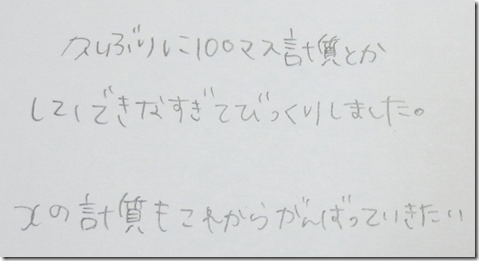 久しぶりに100マス計質とか
してできなすぎてびっくりしました。
xの計質もこれからがんばっていきたい